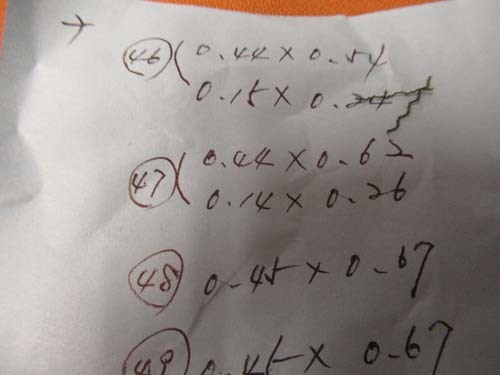 46 ( 0.44 x 0.54
0.15 x 0.
47 ( 0.44 x 0.62
0.14 x 0.26
48 0.45 x 0.67
49 0.45 x 0.67